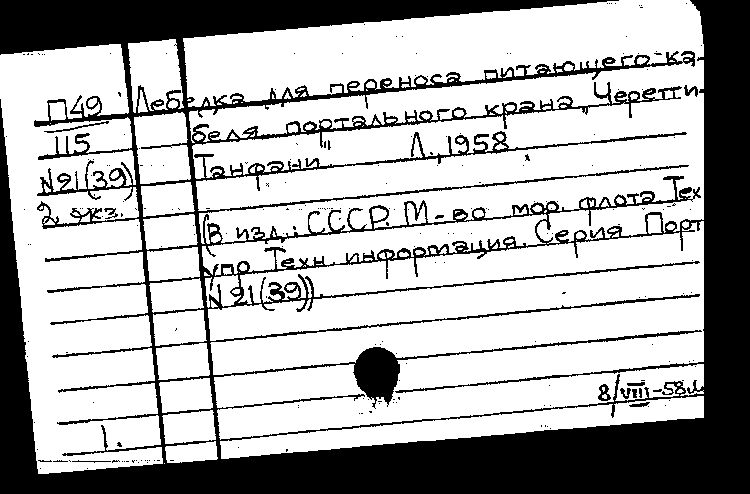 П49 Лебедка для переноса питающего ка-
115 беля портального крана „Черетти-
N21(39) Танфани" Л., 1958
2 экз. (В изд.: СССР. М-во мор. флота Тех
упр Техн. информация. Серия Порт
N 21(39)).
8/VIII-58г
1.